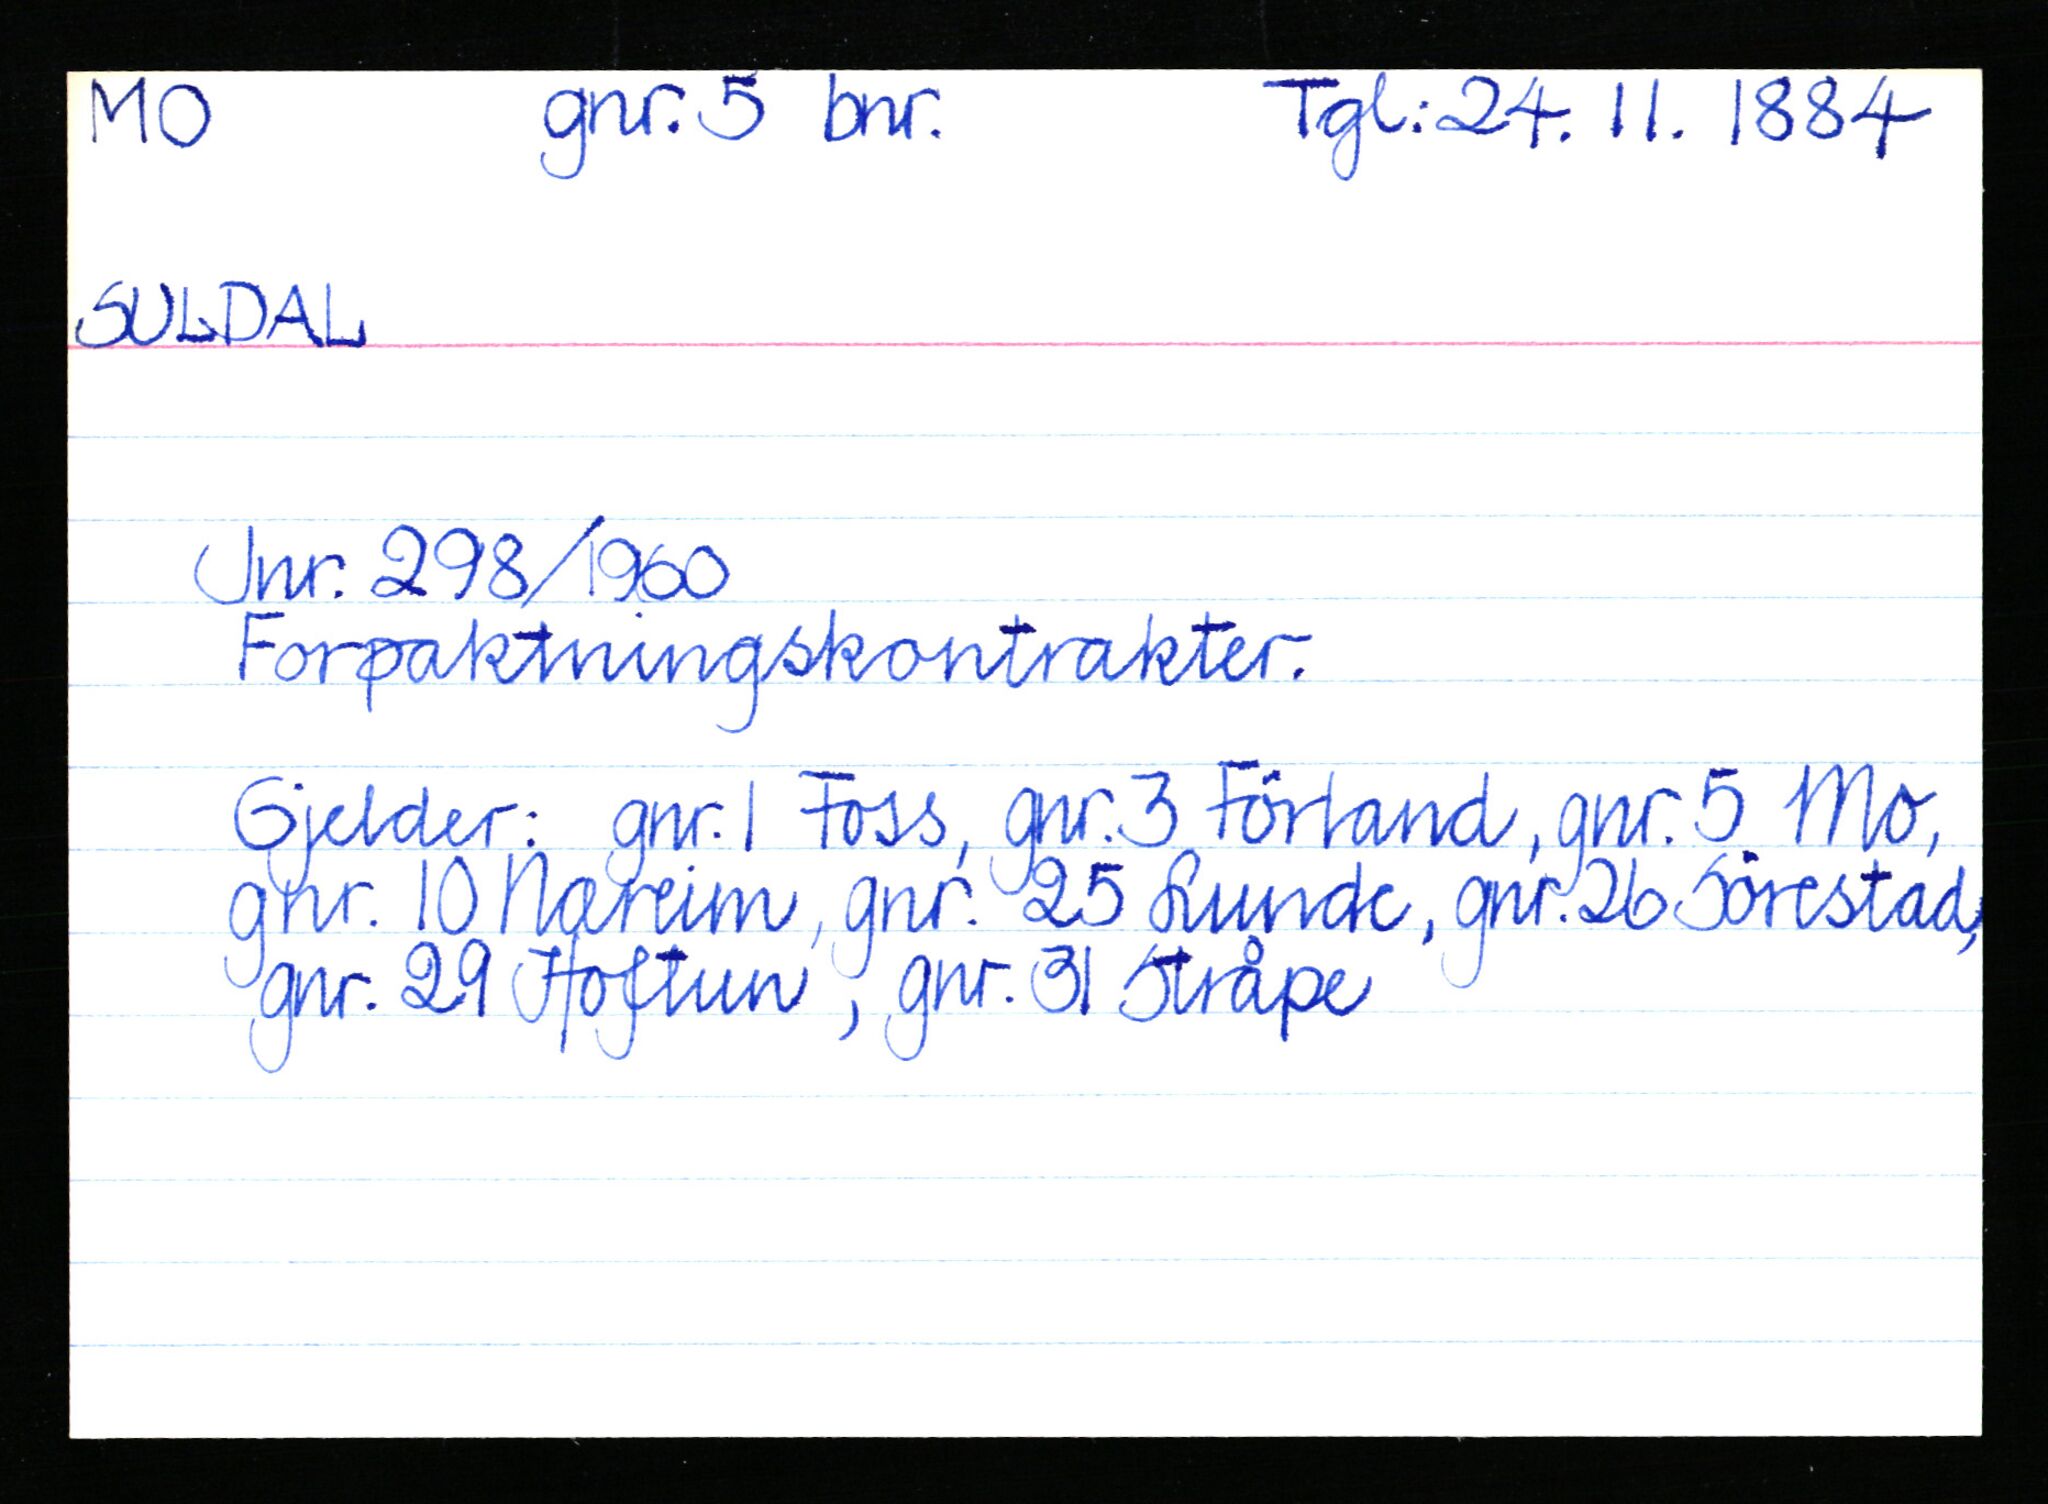 MO gnr. 5 bnr. Tgl.: 24. 11. 1884
SULDAL
Jnr. 298/1960
Forpaktningskontrakter.
Gjelder: gnr. 1 Foss, gnr. 3 Förland, gnr. 5 Mo,
gnr. 10 Næreim, gnr. 25 Lunde, gnr. 26 Sörestad,
gnr. 29 Hoftun, gnr. 31 Stråpe